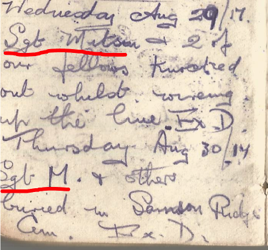 Wednesday Aug 29/17.
Sgt Mitson & 2 of
our fellows knocked
out whilst wiring
up the line. Ex D.
Thursday Aug 30/17
Sgt M. & others
buried in Samson Ridge
Cem. Ex. D.